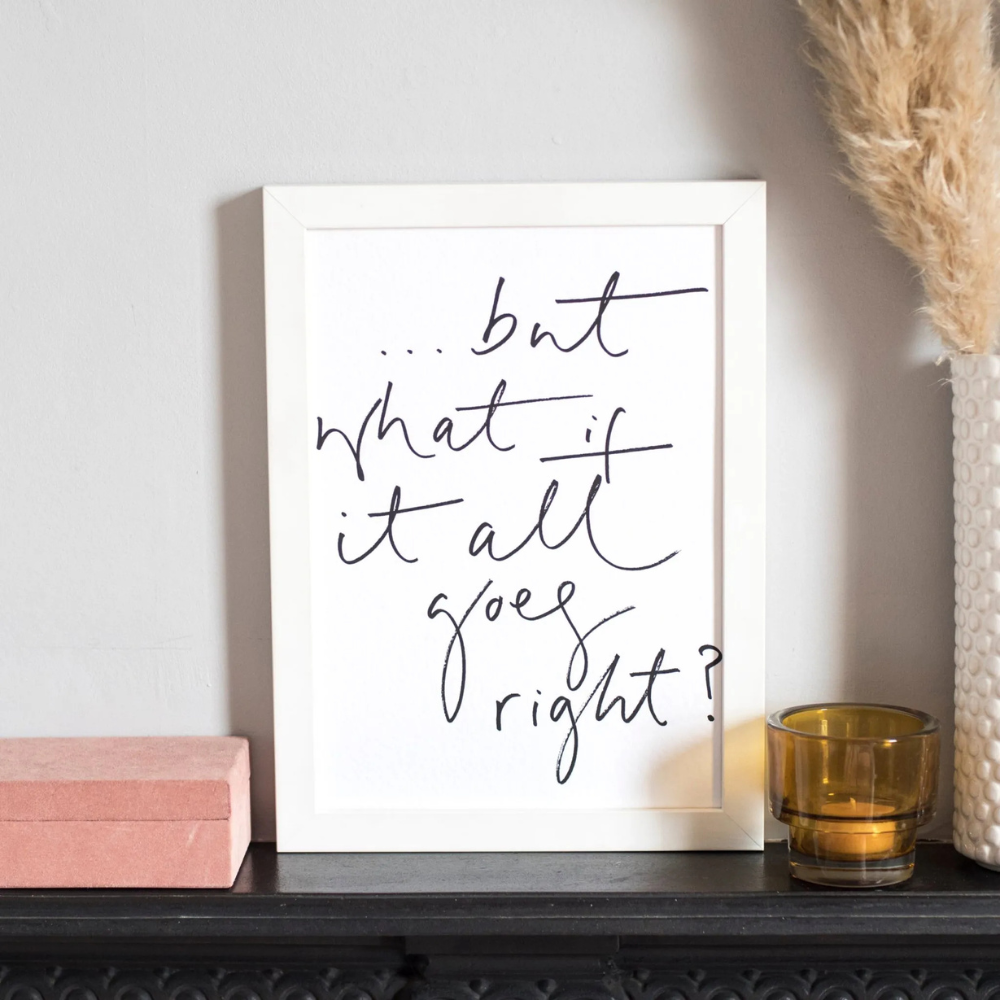 ... but
what if
it all
goes
right?